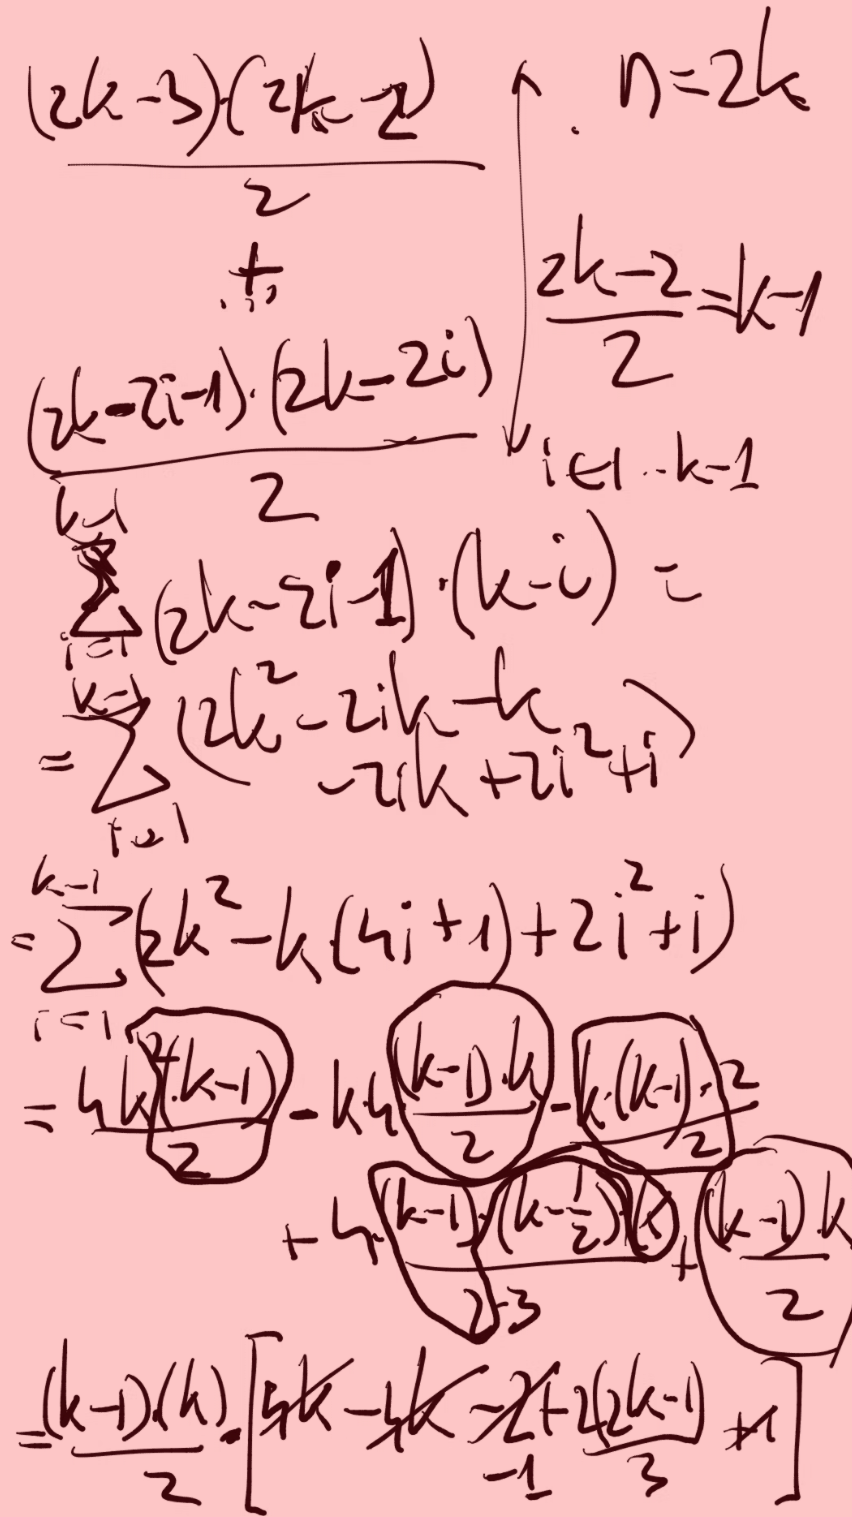 (2k-3)·(2k-2)
2
n=2k
+
...
2k-2
2
=k-1
(2k-2i-1)·(2k-2i)
2
i∈1..k-1
k-1
∑ (2k-2i-1)·(k-i) =
i=1
k-1
= ∑ (2k²-2ik-k
-2ik+2i²+i)
i=1
k-1
= ∑ (2k²-k(4i+1)+2i²+i)
i=1
= 4k²(k-1)/2 - k4 (k-1)·k/2 - k·(k-1)·2/2
+ 4·(k-1)·(k-1/2)·k/2·3 + (k-1)·k/2
= (k-1)·(k)/2 · [4k-4k-2+2(2k-1)/3 +1]
-1